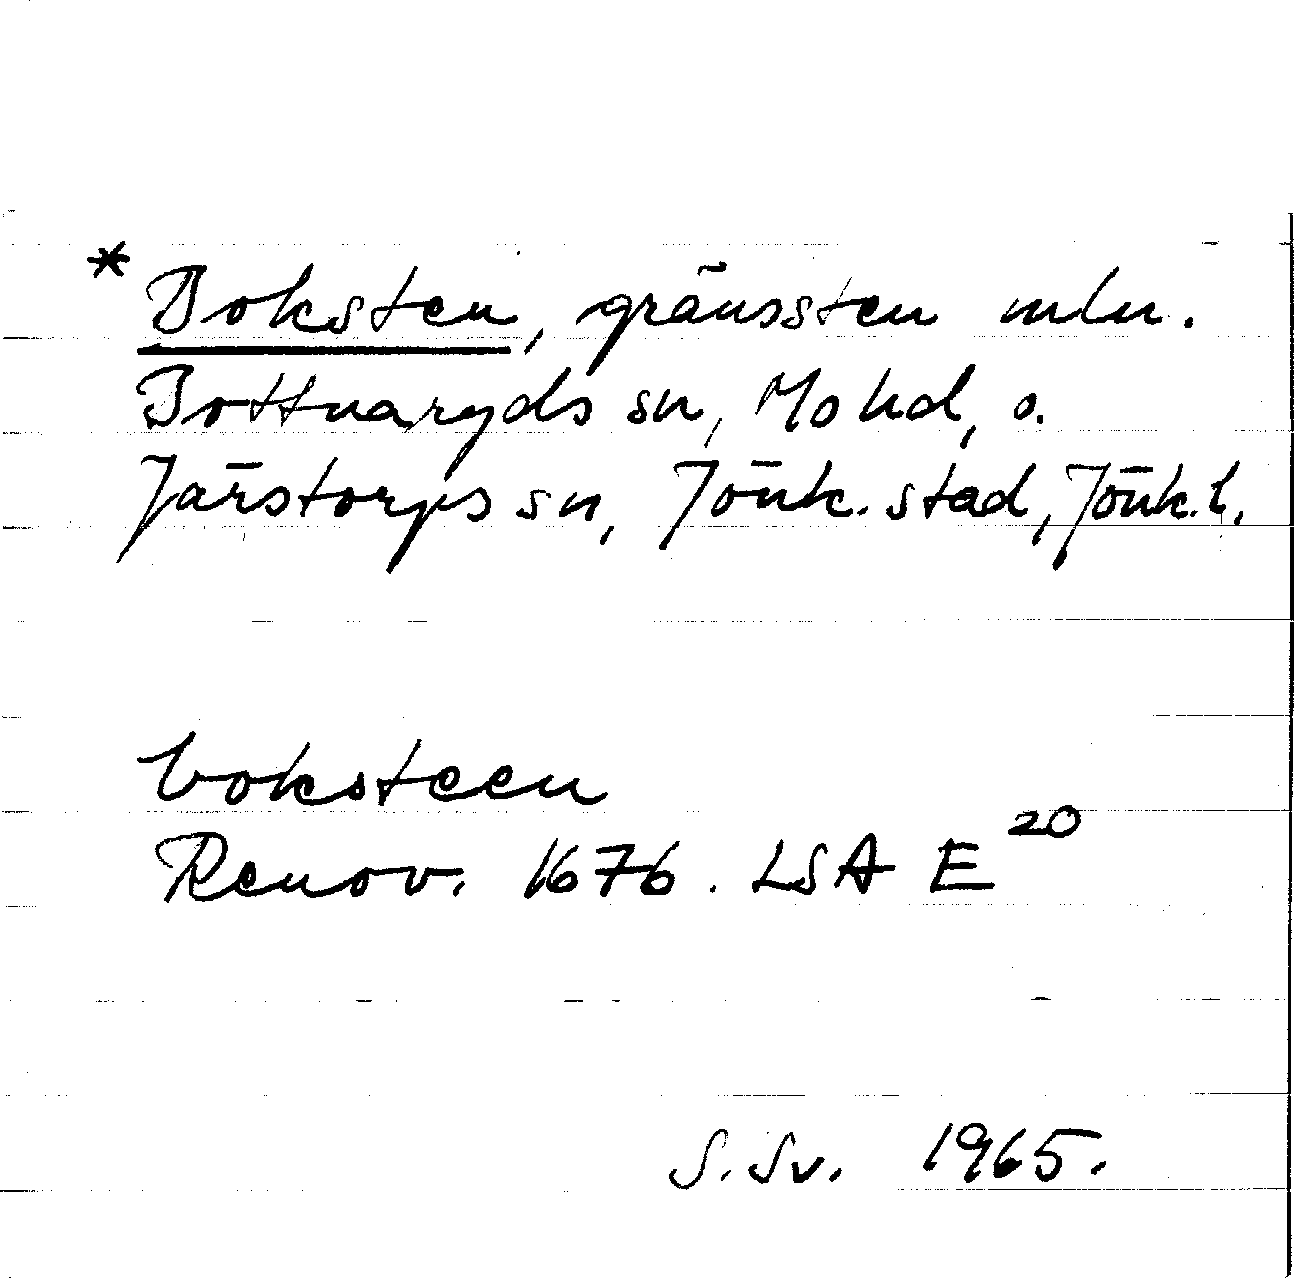 * Boksten, gränssten mln.
Bottnaryds sn, Mo hd, o.
Järstorps sn, Jönk. stad, Jönk.l.
boksteen
Renov. 1676. LSA E 20
S. Sv. 1965.